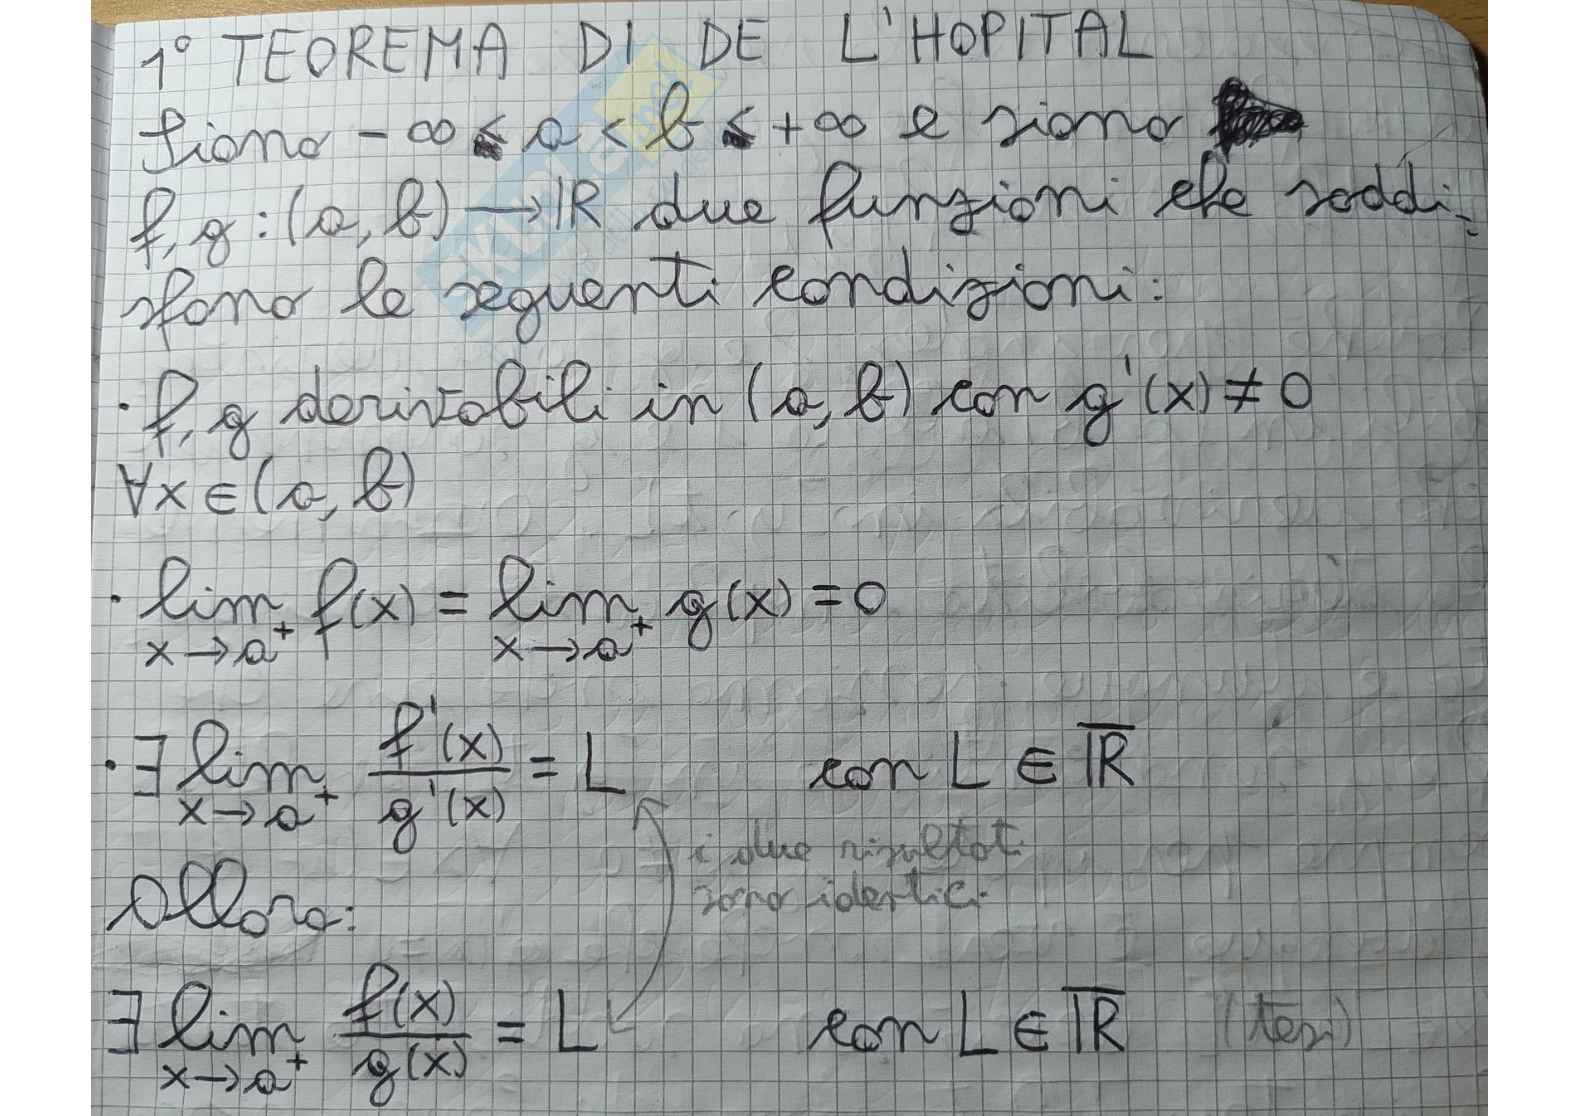 1° TEOREMA DI DE L'HOPITAL
Siano -∞ ≤ a < b ≤ +∞ e siano
f, g : (a, b) → ℝ due funzioni che soddi-
sfano le seguenti condizioni:
· f, g derivabili in (a, b) con g'(x) ≠ 0
∀x ∈ (a, b)
· lim x→a⁺ f(x) = lim x→a⁺ g(x) = 0
· ∃ lim x→a⁺ f'(x)/g'(x) = L con L ∈ ℝ̅
i due risultati
sono identici.
Allora:
∃ lim x→a⁺ f(x)/g(x) = L con L ∈ ℝ̅ (tesi)